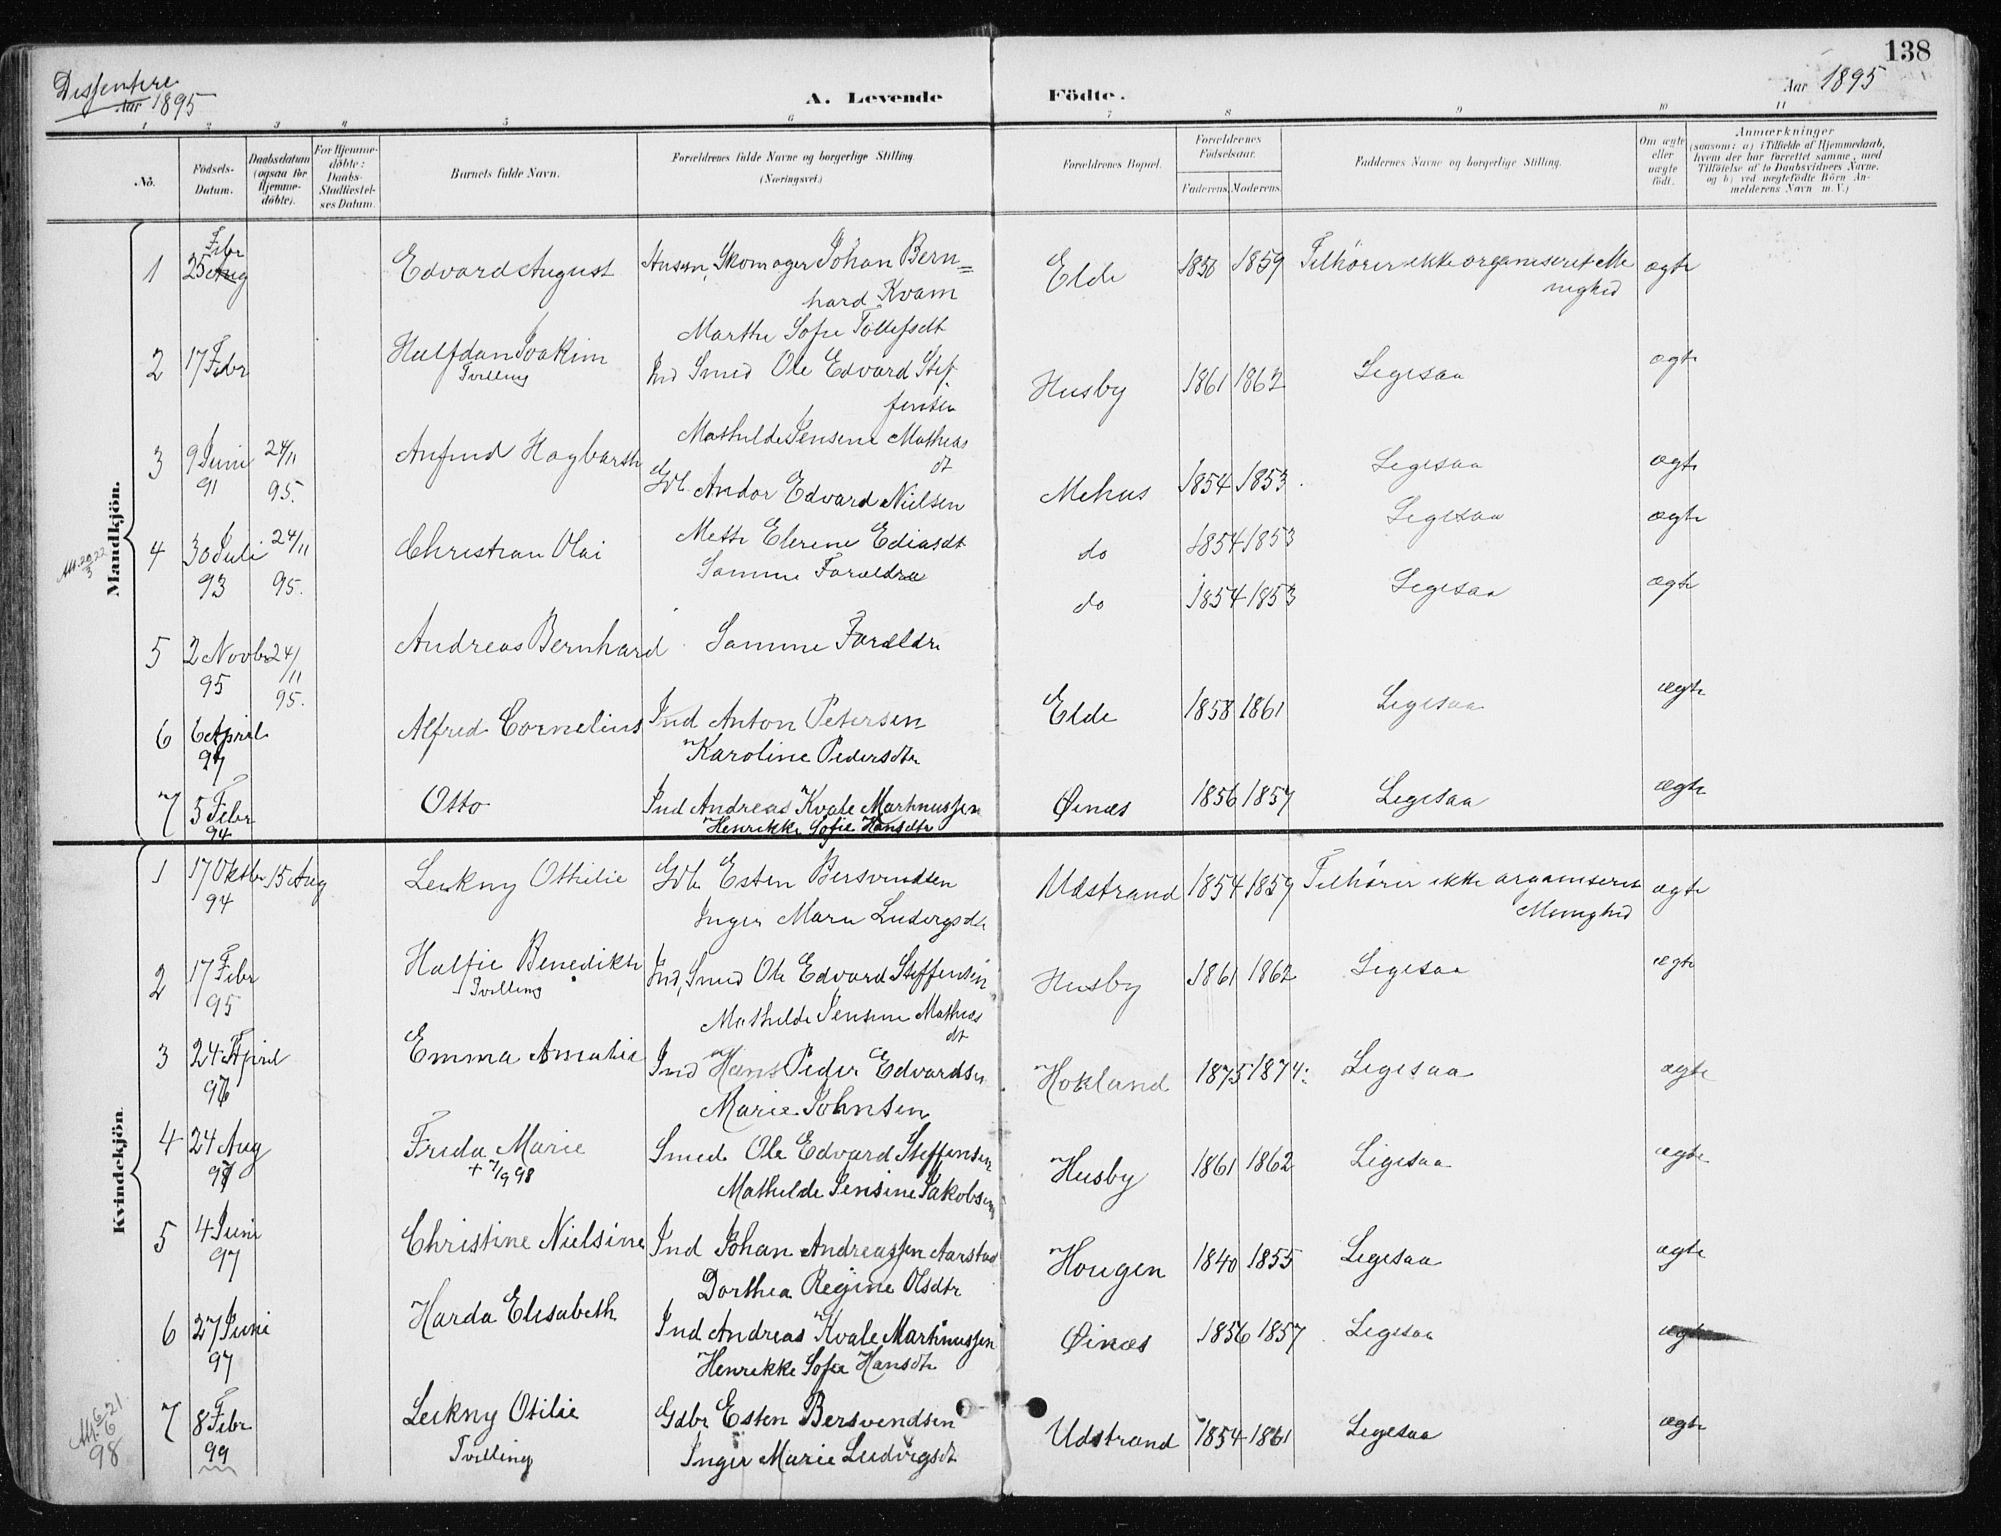 138
Dissentere
Aar 1895
A. Levende Födte.
Aar 1895
1 2 3 4 5 6 7 8 9 10 11
No. Födsels-Datum. Daabsdatum (ogsaa for Hjemme-döbte). For Hjemme-döbte: Daabs-Stadfæstel-ses Datum. Barnets fulde Navn. Forældrenes fulde Navne og borgerlige Stilling. (Næringsvei.) Forældrenes Bopæl. Forældrenes Födselsaar. Faderens. Moderens. Faddernes Navne og borgerlige Stilling. Om ægte eller uægte födt. Anmærkninger (saasom: a) i Tilfælde af Hjemmedaab, hvem der har forrettet samme, med Tilföielse af to Daabsvidners Navne, og b) ved uægtefödte Börn An-melderens Navn m. V.)
Mandkjön.
1 25 Aug Febr Edvard August Skomager Johan Bern=
hard Kvam
Marthe Sofie Tollefsdt
Elde 1859 Tilhører ikke organiseret Me
nighed ægte
2 17 Febr Halfdan Joakim
Tvilling
Ind Smed Ole Edvard Stef
fensen
Mathilde Jensine Mathias
dt
Husby 1861 1862 Ligesaa ægte
3 9 Juni 91 24/11 95. Hagbarth
Gdb. Andor Edvard Nielsen
Mette Elerine Ediasdt
Mehus 1854 1853 Ligesaa ægte
Ligesaa ægte
4 30 Juli 93 24/11 95. Christian Olai Samme Forældre do 1854 1853 Ligesaa ægte
5 2 Novbr 95 24/11 95. Andreas Bernhard Samme Forældre do 1854 1853
6 6 April 97 Alfred Cornelius Ind Anton Petersen
Karoline Pedersdtr
Elde 1858 1861 Ligesaa ægte
7 5 Febr 94 Otto Ind Andreas Kvale Martinussen
Henrikke Sofie Hansdtr
Øinæs 1856 1857 Ligesaa ægte
Kvindekjön.
1 17 Oktbr 94 15 Aug Ottilie Gdb. Esten Bersvendsen
Inger Marie Ludvigsdt
Udstrand 1854 1859 Tilhører ikke organiseret
Menighed ægte
2 17 Febr 95 Benedikte
Tvilling
Ind, Smed Ole Edvard Steffensen
Mathilde Jensine Mathias
dt
Husby 1861 1862 Ligesaa ægte
3 24 April Emma Amalie Ind Hans Peder Edvardsen
Marie Johnsen
Hokland 1875 1874 Ligesaa ægte
4 24 Aug 97 Frida Marie
+ 7/9 98
Smed Ole Edvard Steffensen
Mathilde Jensine Jakobsen
Husby 1861 1862 Ligesaa ægte
5 4 Juni 97 Christine Nielsine Ind Johan Andreassen Aarstad
Dorthea Regine Olsdtr
Hougen 1840 1855 Ligesaa ægte
6 27 Juni 97 Harda Elisabeth Ind Andreas Kvale Martinussen
Henrikke Sofie Hansdtr
Øinæs 1856 1857 Ligesaa ægte
7 8 Febr 99 Otilie
Tvilling
Gdbr Esten Bersvendsen
Inger Marie Ludvigsdt
Udstrand 1854 1861 Ligesaa ægte